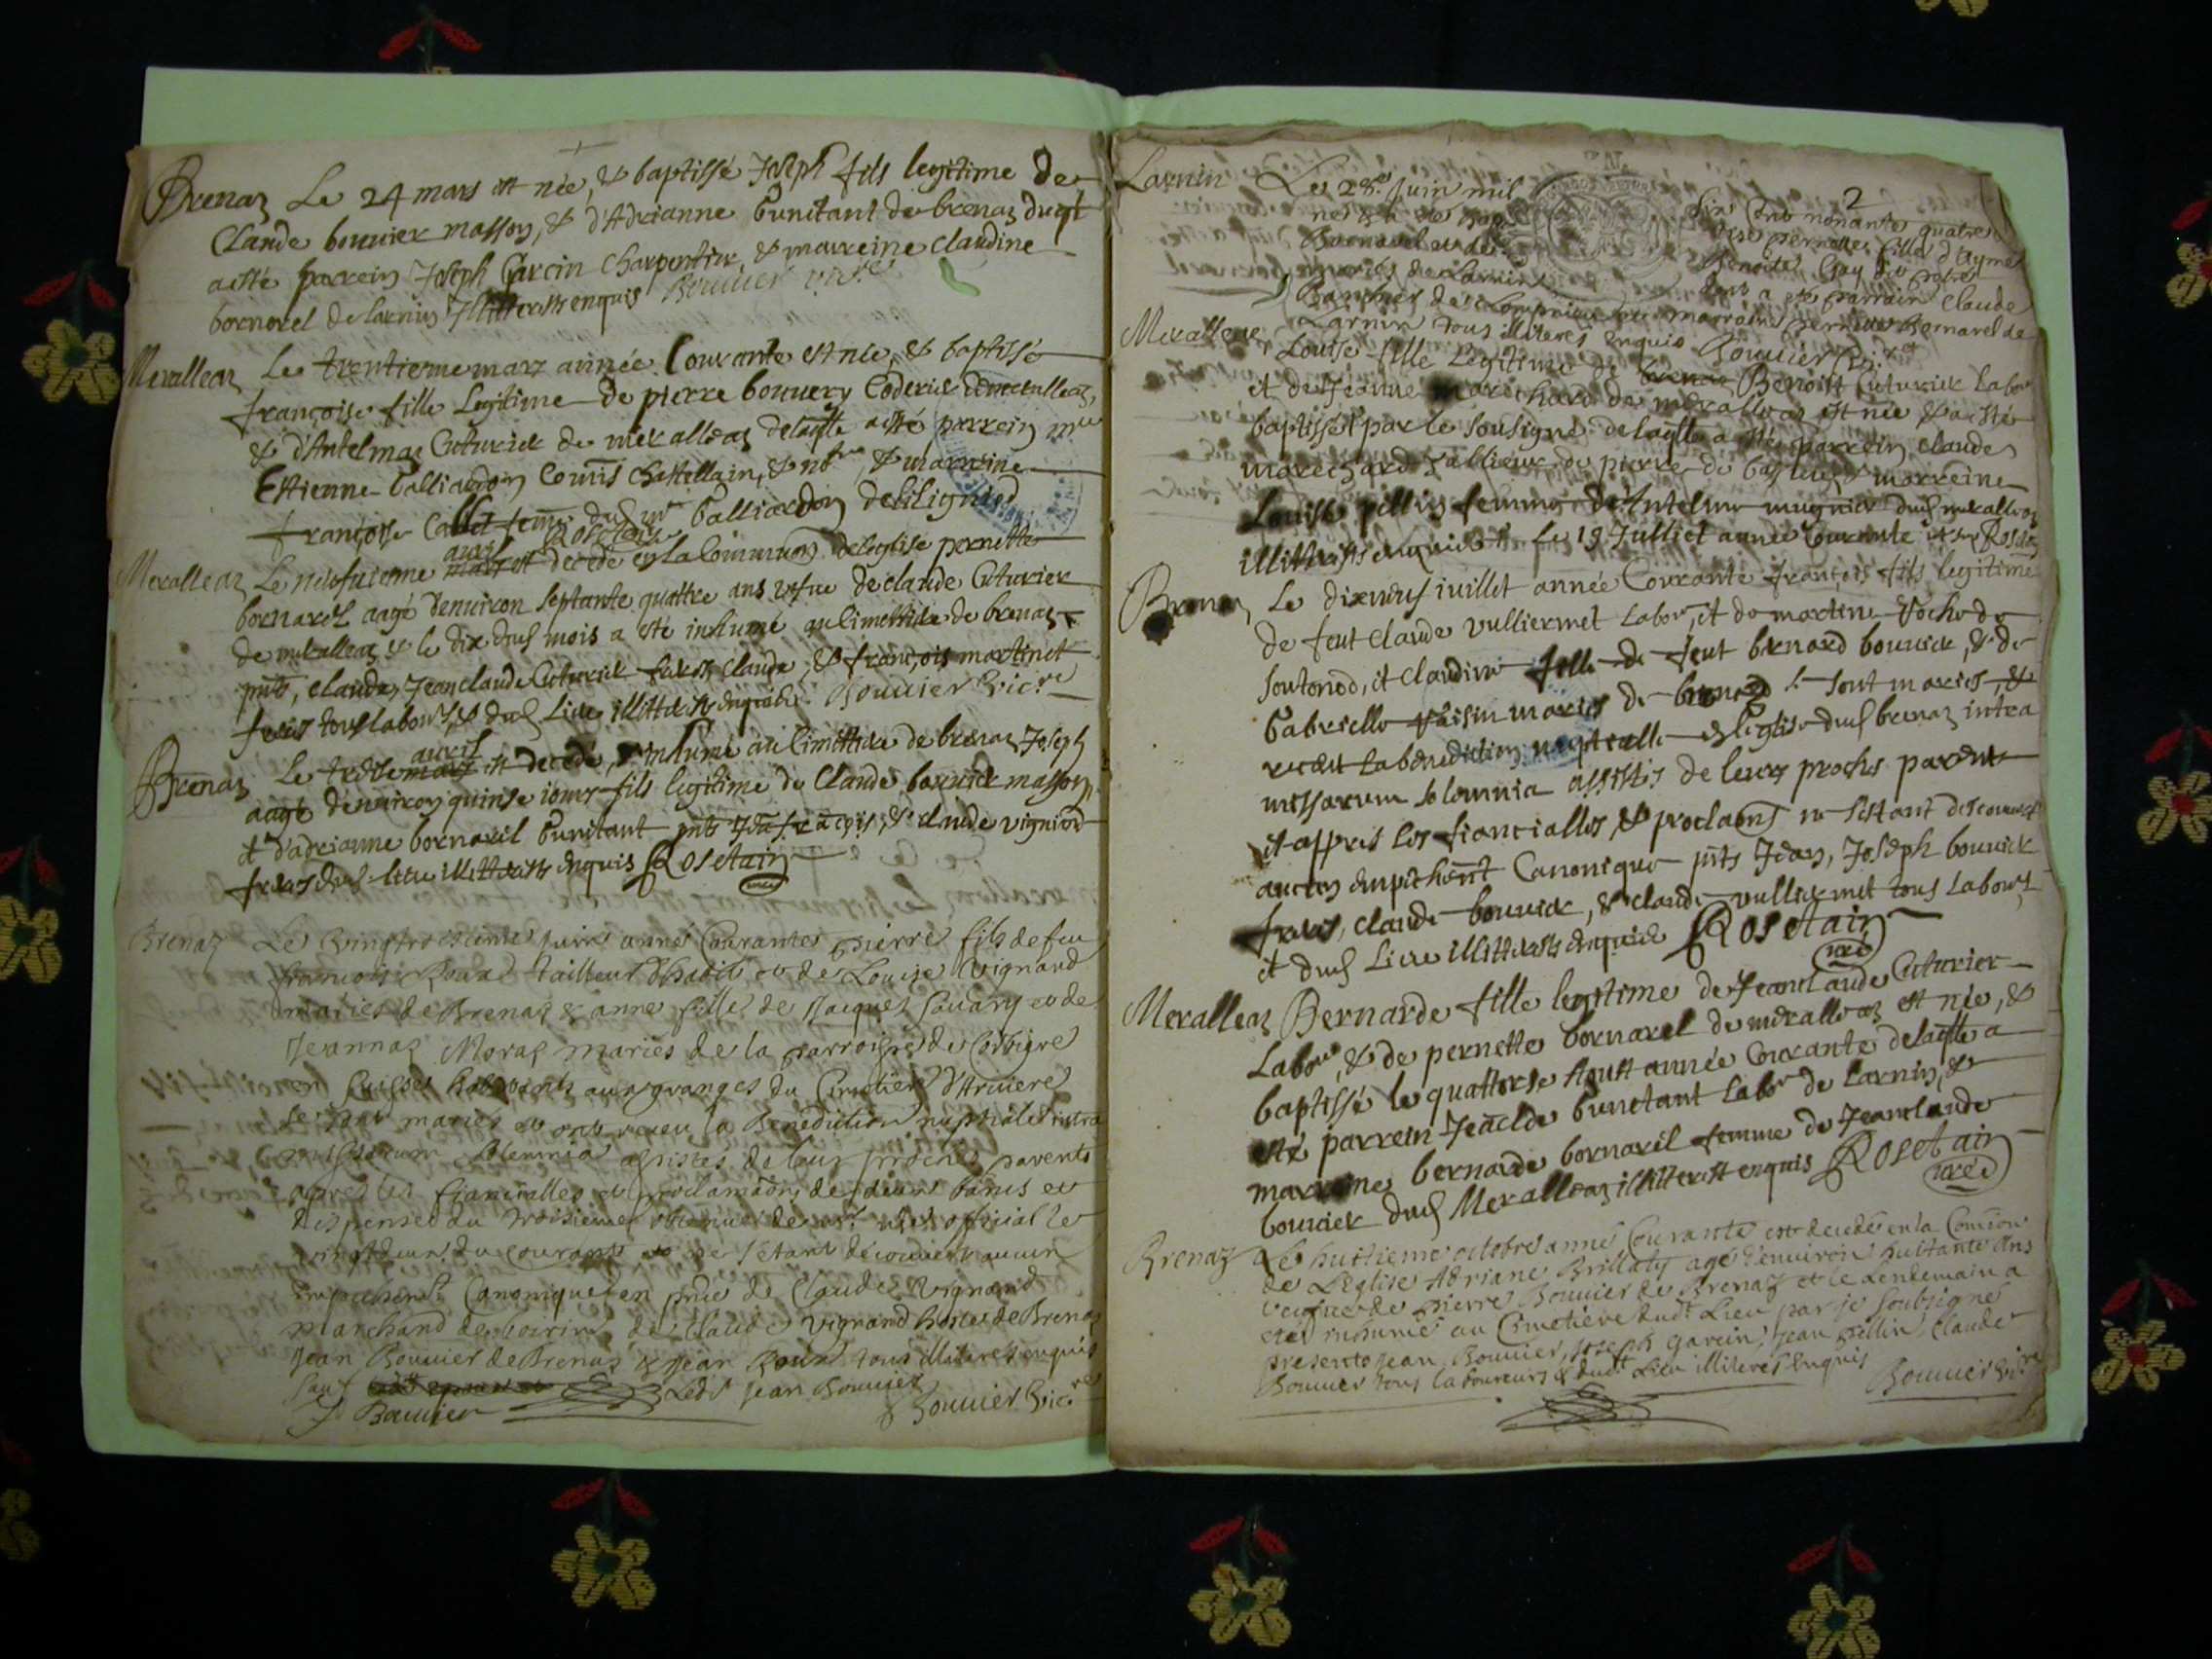 Brenaz Le 24 mars est née, & baptissé Joseph fils legitime de
Claude bouvier masson, & d'Adrianne Cunitant de brenaz duqt
a esté parrein Joseph Garcin charpentier, & marreine claudine
bornarel de larnin Illitterés enquis Bouvier vic.re
Meralleaz Le trentieme marz année Courante est née, & baptissé
françoise fille Legitime de pierre bouvery
& d'Antelmaz Cuturier de meralleaz delaqlle a esté parrein
Estienne Calliardon Comis Chastellain, & & marreine
françoise du Calliardon
Rosetain
Meralleaz Le neufvieme avril mars est decedé en la Communion de leglise pernette
bornarel aagé denviron septante quattre ans vefve de claude Cuturier
de meralleaz & le dix dud mois a esté inhumé au cimettiere de brenaz
pnts, claude, Jean claude Cuturier claude, & françois martinet
freres tous labours, & dud Lieu illitterés enquis Bouvier vic.re
Brenaz Le treze avril marz est decedé, & inhumé au cimettiere de brenaz Joseph
aagé denviron quinse iours fils legitime de Claude bouvier masson
et d'adrianne bornarel Cunitant pnts & claude vignond
freres dud lieu illitterés enquis Rosetain
curé
Brenaz Le vingtroisieme juin année Courante pierre fils de feu
francois Roux tailleur d'habits et de Louise Vignand
maries de Brenaz & anne fille de Jacques Savary et de
Jeannaz Moraz maries de la parroisse de Corbiere
suisses habitants aux granges du Cimetiere d'Arviere
se sont mariés et ont receu la Benediction nuptiale intra
missarum solemnia assistes de leur proches parents
apres les fiancialles et proclamaõns de deux bancs et
dispense du troisieme obtenue de official le
vingtdeux du courant et ne s'etant decouvert aucun
empechemt Canonique en pnce de Claude Vignand
marchand de de Claude Vignand hoste de Brenaz
Jean Bouvier de Brenaz & Jean Roux tous illiteres enquis
sauf Ledt Jean Bouvier
J Bouvier Bouvier vic.re
2
Larnin Le 28e Juin mil six cent nonante quatre
née & a été pernette fille d'Aymé
Bornarel et de Benoite Gay
mariés de Larnin dont a esté parrain Claude
de et marraine pernette Bornarel de
Larnin tous illiteres enquis Bouvier vic.re
Meralleaz Louise fille Legitime de brenaz Benoist Cuturier labor
et de Jeanne marechard de meralleaz est née & a esté
baptissée par le sousigné delaqlle a esté parrein claude
marechard de pierre de & marreine
Louise pellin femme de Antelme mugnier dud meralleaz
illitterés enquis Le 19 Julliet année Courante
Brenaz Le dixneuf iuillet année Courante françois fils legitime
de feut claude vulliermet Labor, et de martine
soutonod, et claudine fille de feut bernard bouvier, & de
Gabrielle maries de brenaz se sont mariés, &
receut la benediction nuptialle en leglise dud brenaz intra
missarum solomnia assistis de leurs proches parents
et appres les fiancialles, & proclaõns ne sestant descouvert
aucun empichemt Canonique pnts Jean, Joseph bouvier
freres, claude bouvier, & claude vulliermet tous Labours
et dud Lieu illitterés enquis Rosetain
curé
Meralleaz Bernarde fille legitime de Jean claude Cuturier
Labor, & de pernette bornarel de meralleaz est née, &
baptissé le quattorse Aoust année Courante delaqlle a
esté parrein Jeaclde Cunetant labor de Larnin, &
marreine bernarde bornarel femme de Jeanclaude
bouvier dud Meralleaz illitterés enquis Rosetain
curé
Brenaz Le huitieme octobre année Courante est decedée en la Comõn
de L'eglise Adriane Brillaty agé denviron huitante ans
veufve de pierre Bouvier de Brenaz et le Lendemain a
eté inhumé au Cimetiere dudt Lieu par je soubsigné
presents Jean Bouvier, Joseph Garcin, Jean pellin, Claude
Bouvier tous laboureurs & dudt Lieu illiteres enquis
Bouvier vic.re